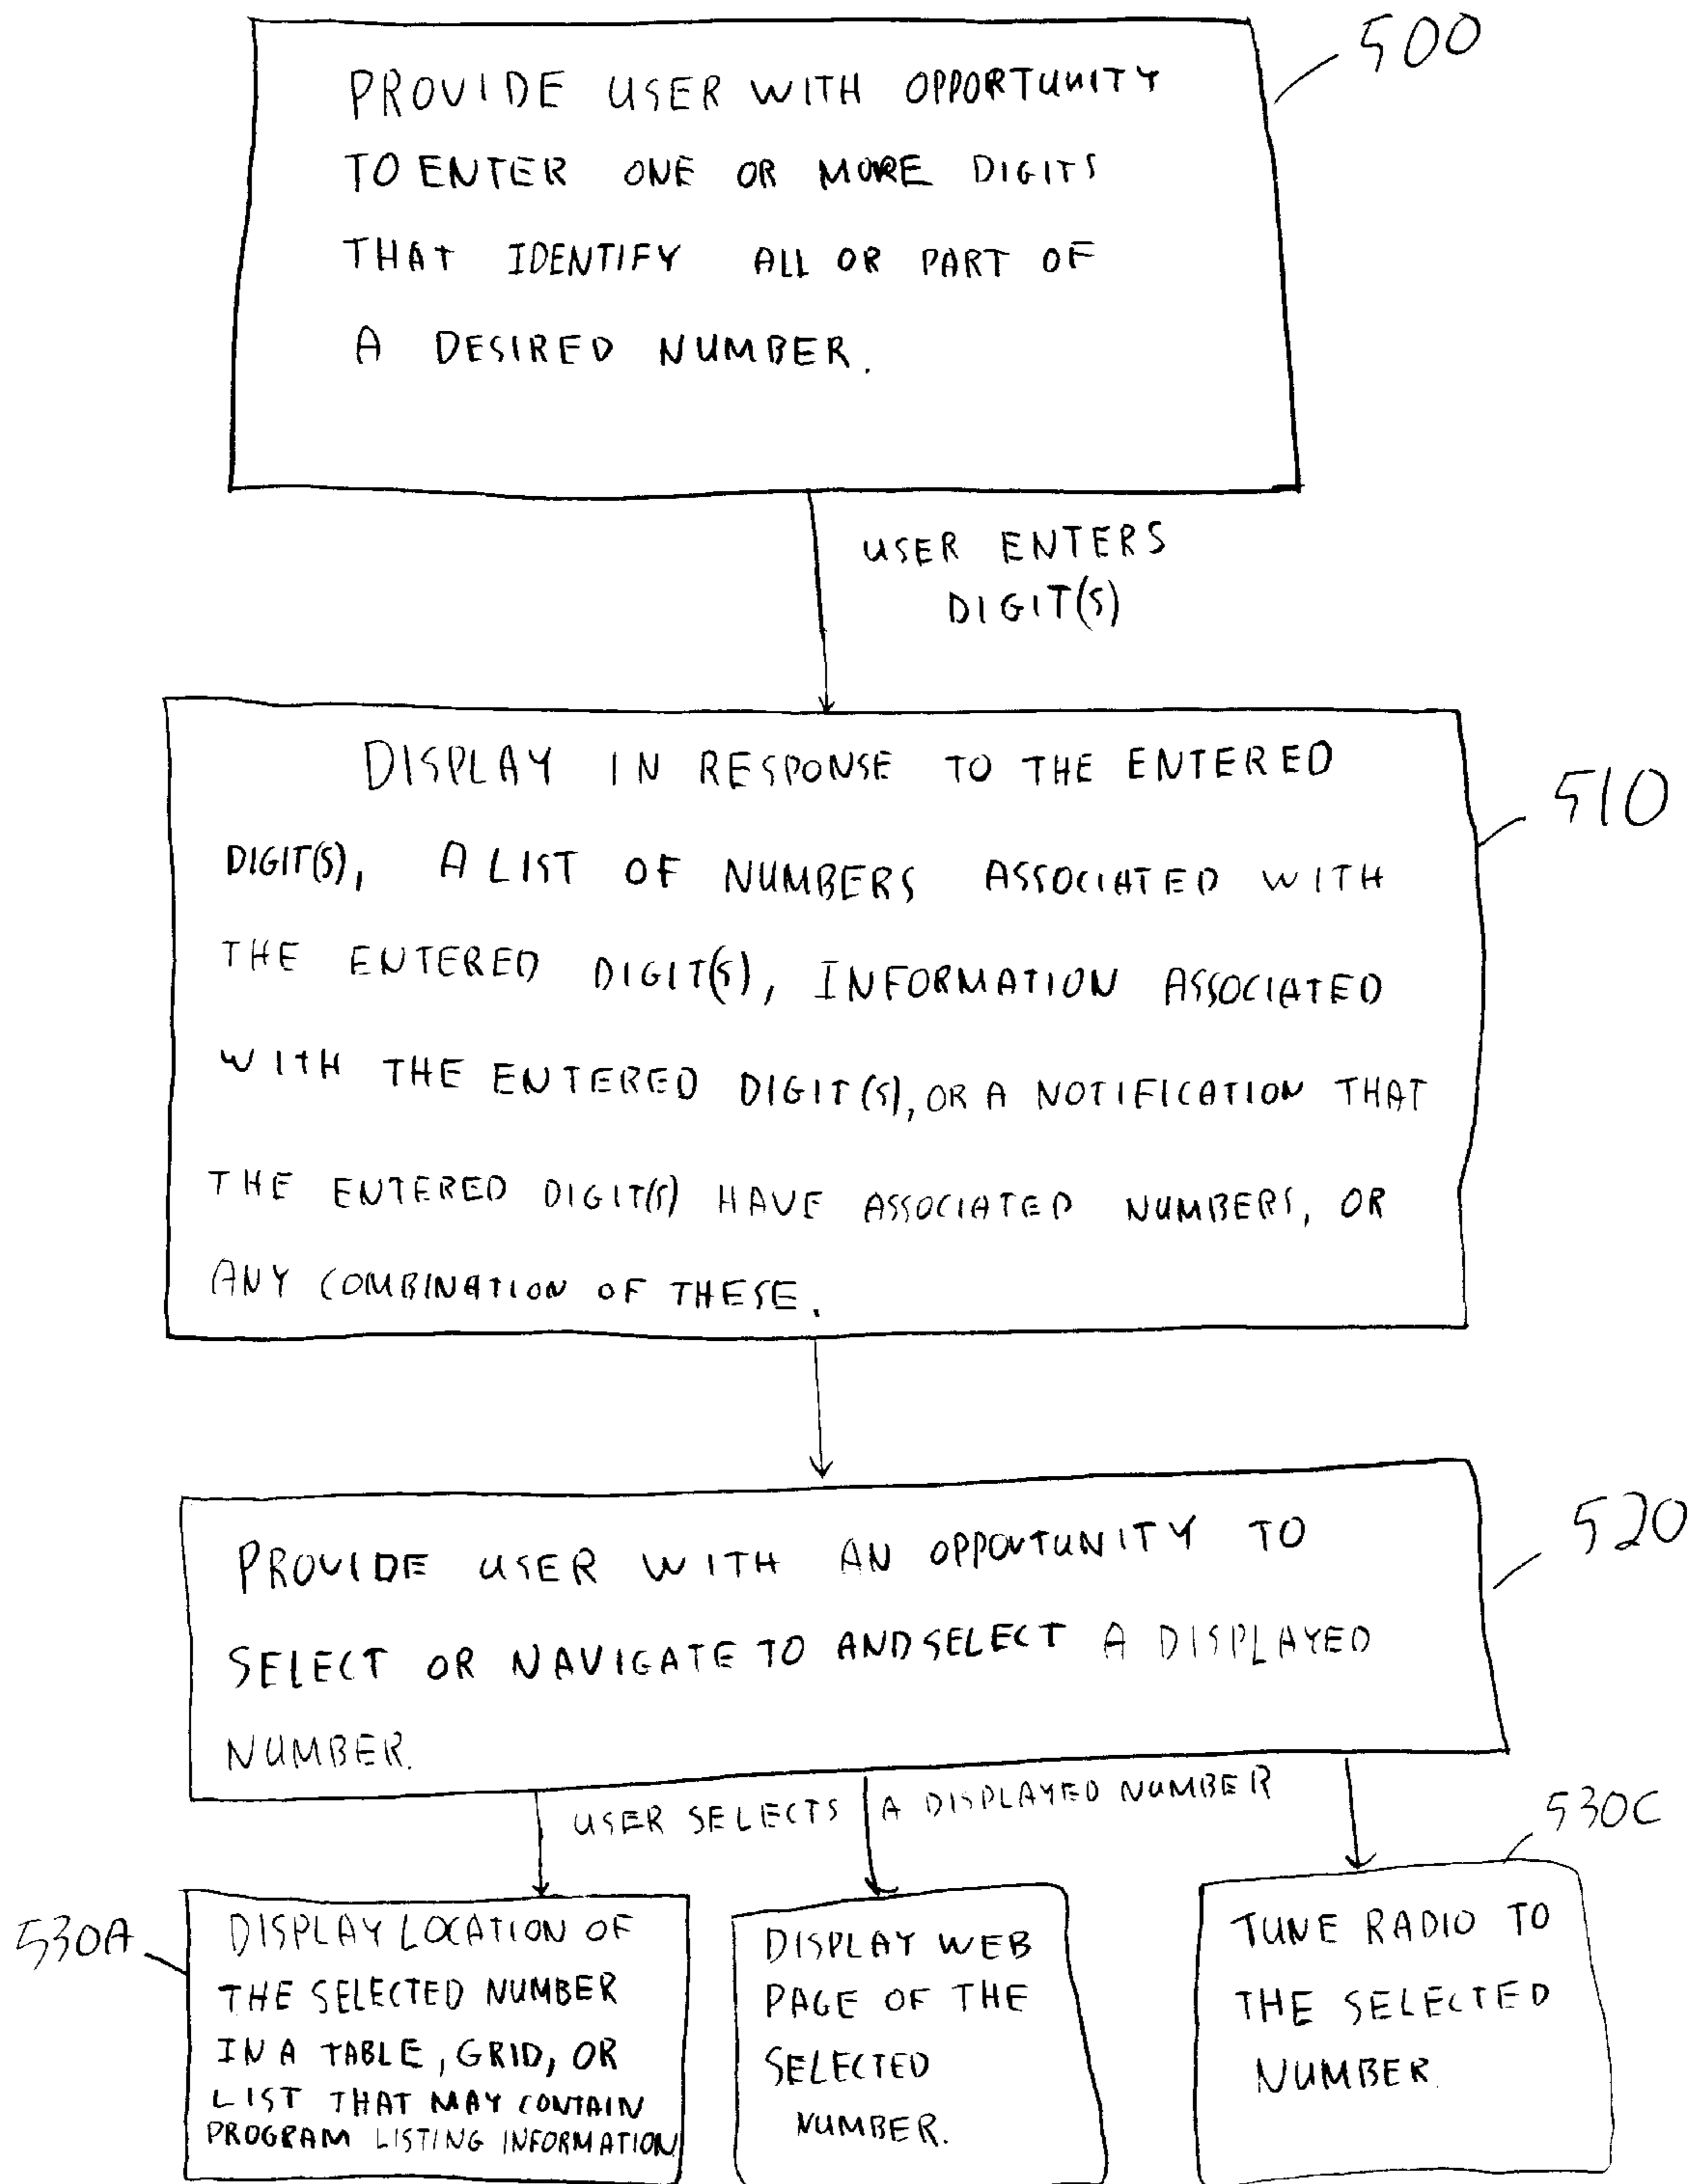 500
PROVIDE USER WITH OPPORTUNITY
TO ENTER ONE OR MORE DIGITS
THAT IDENTIFY ALL OR PART OF
A DESIRED NUMBER.
USER ENTERS
DIGIT(S)
510
DISPLAY IN RESPONSE TO THE ENTERED
DIGIT(S), A LIST OF NUMBERS ASSOCIATED WITH
THE ENTERED DIGIT(S), INFORMATION ASSOCIATED
WITH THE ENTERED DIGIT(S), OR A NOTIFICATION THAT
THE ENTERED DIGIT(S) HAVE ASSOCIATED NUMBERS, OR
ANY COMBINATION OF THESE.
520
PROVIDE USER WITH AN OPPORTUNITY TO
SELECT OR NAVIGATE TO AND SELECT A DISPLAYED
NUMBER.
USER SELECTS A DISPLAYED NUMBER
530A
DISPLAY LOCATION OF
THE SELECTED NUMBER
IN A TABLE, GRID, OR
LIST THAT MAY CONTAIN
PROGRAM LISTING INFORMATION
DISPLAY WEB
PAGE OF THE
SELECTED
NUMBER.
530C
TUNE RADIO TO
THE SELECTED
NUMBER.